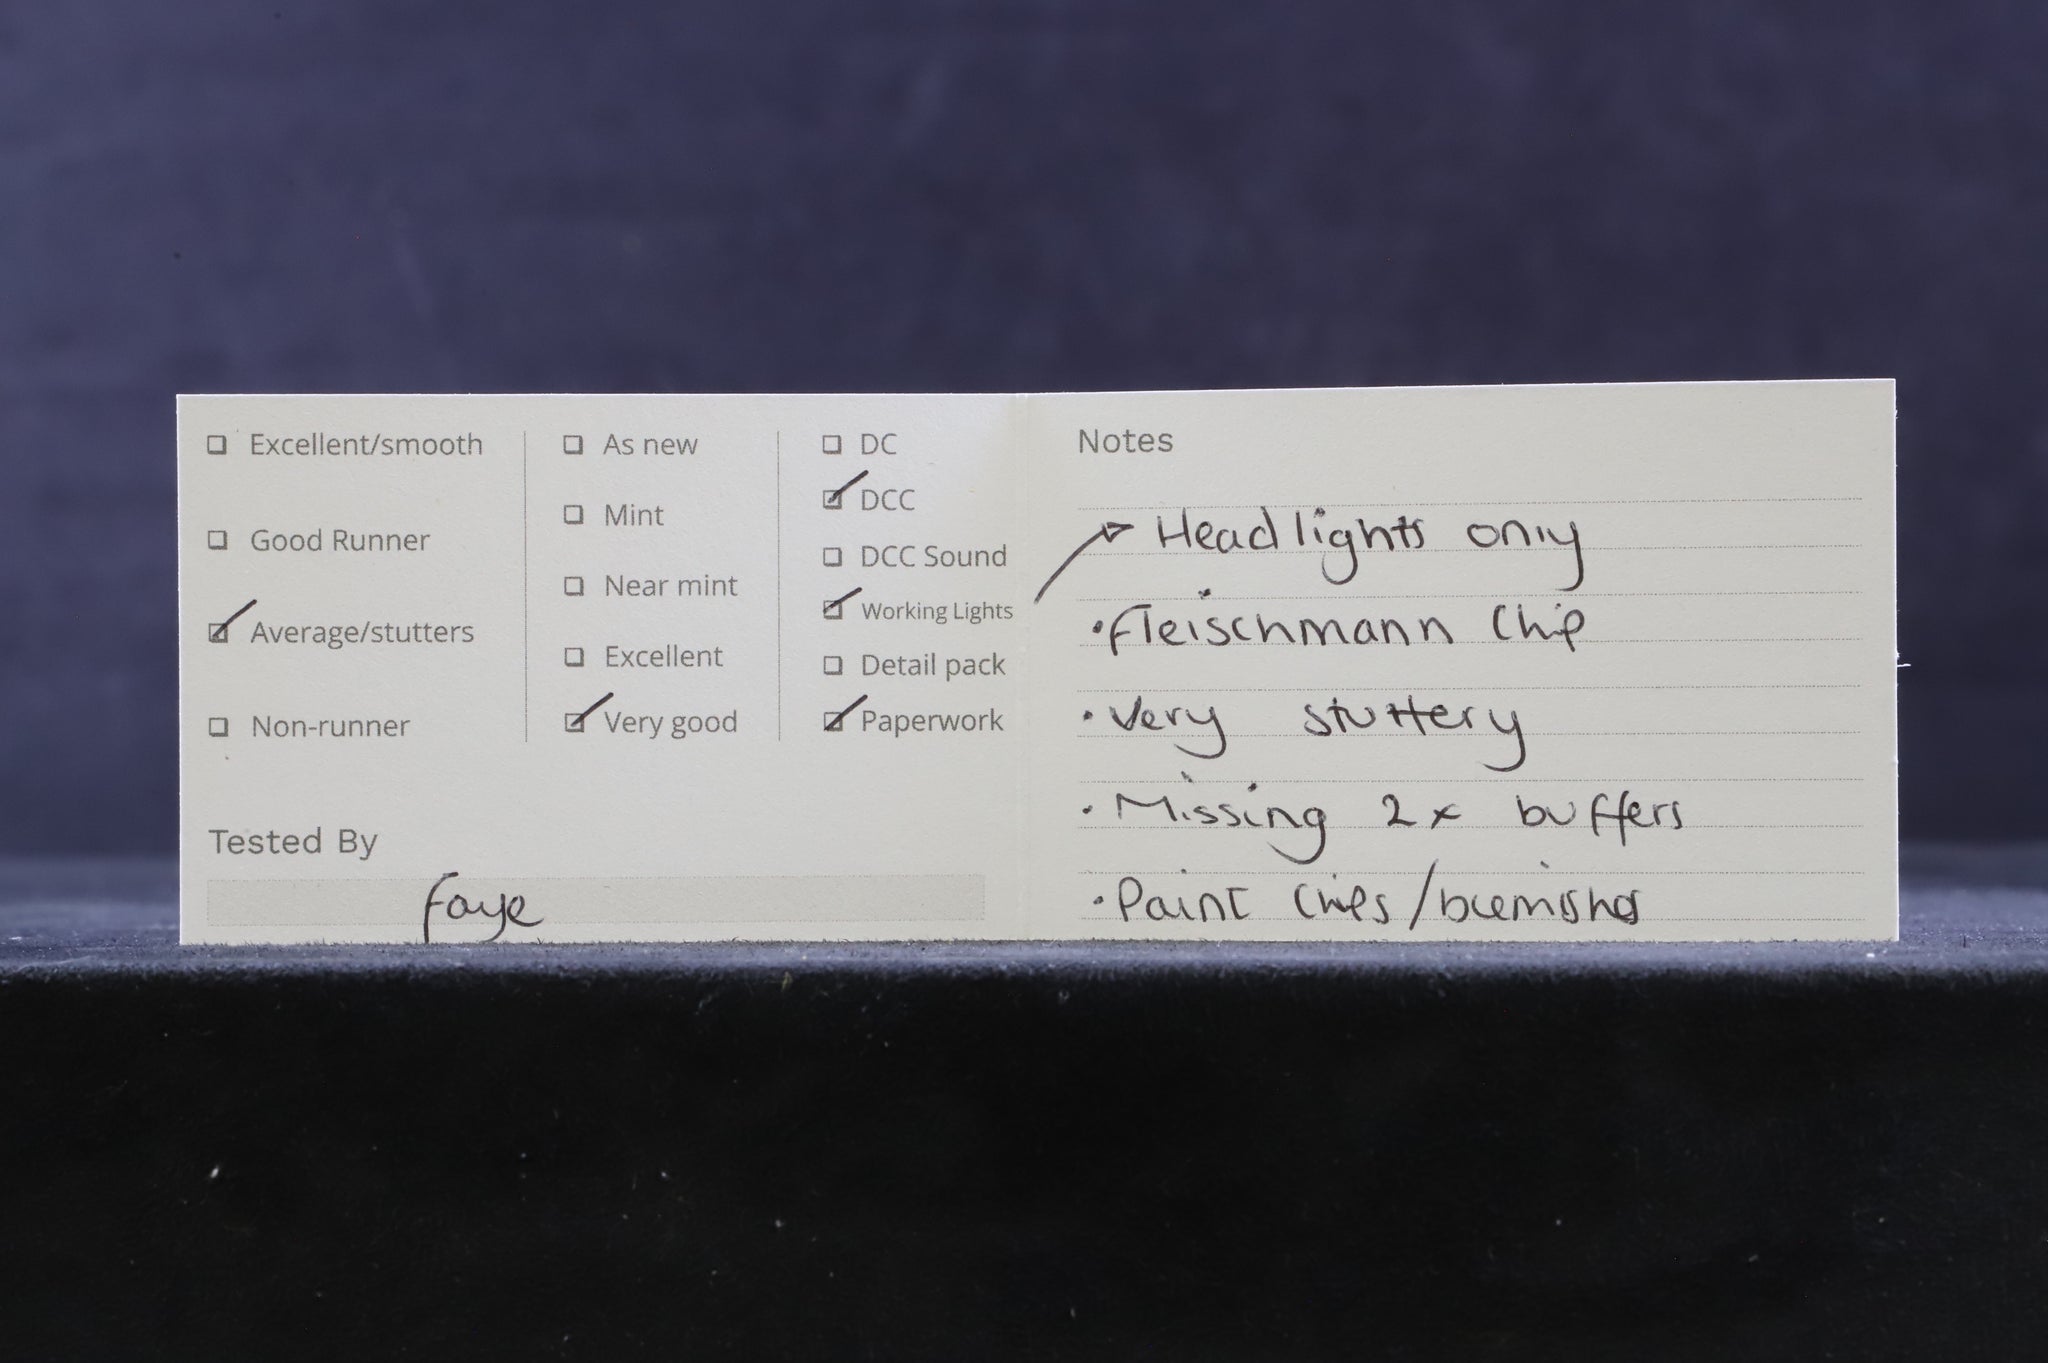 Excellent/smooth
Good Runner
Average/stutters
Non-runner
As new
Mint
Near mint
Excellent
Very good
DC
DCC
DCC Sound
Working Lights
Detail pack
Paperwork
Tested By
Faye
Notes
Headlights only
• Fleischmann Chip
• Very stuttery
• Missing 2x buffers
• Paint Chips/blemishes